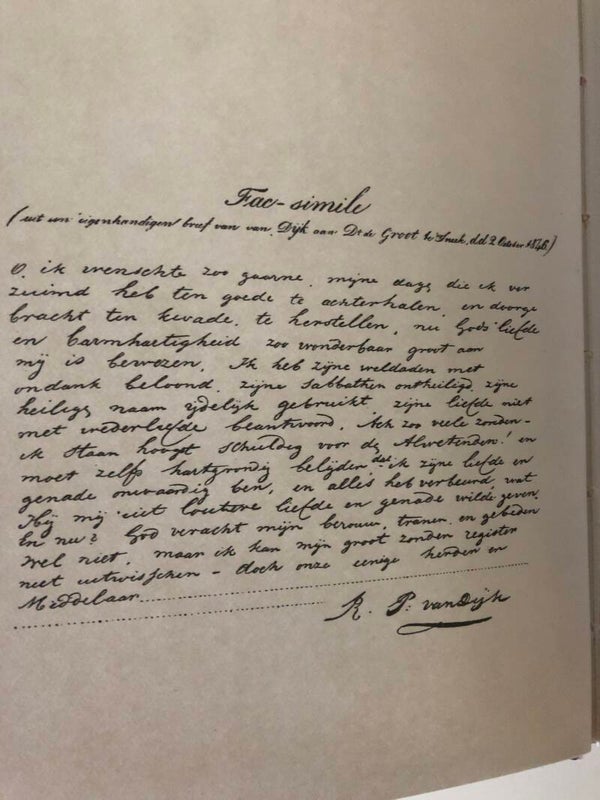 Fac-simile
(uit een eigenhandigen brief van van Dijk aan Ds de Groot te Sneek, d.d. 2 October 1848)
O. ik wenschte zoo gaarne, mijne dagen die ik ver
zuimd heb ten goede te achterhalen, en doorge
bracht ten kwade, te herstellen, nu Gods liefde
en barmhartigheid zoo wonderbaar groot aan
mij is bewezen. Ik heb zijne weldaden met
ondank beloond, zijne Sabbathen ontheiligd, zijne
heilige naam ijdelijk gebruikt, zijne liefde niet
met wederliefde beantwoord. Ach zoo vele zonden-
ik staan hoogst schuldig voor de Alwetenden! en
moet zelfs hartgrondig belijden dat ik zijne liefde en
genade onwaardig ben, en alles heb verbeurd, wat
Hij mij uit loutere liefde en genade wilde geven.
En nu? God veracht mijn berouw, tranen en gebeden
wel niet, maar ik kan mijn groot zonden register
niet uitwisschen - doch onze eenige herder en
Middelaar
R. P. van Dijk